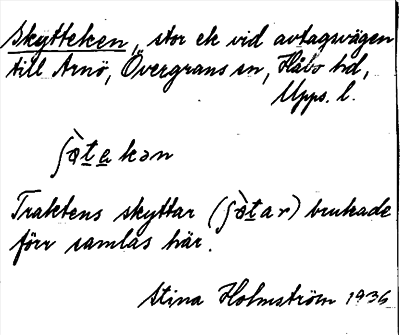 Skytteken, stor ek vid avtagsvägen
till Arnö, Övergrans sn, Håbo hd,
Upps. l.
ʃø̀takən
Traktens skyttar (ʃø̀tar) brukade
förr samlas här.
Stina Holmström 1936